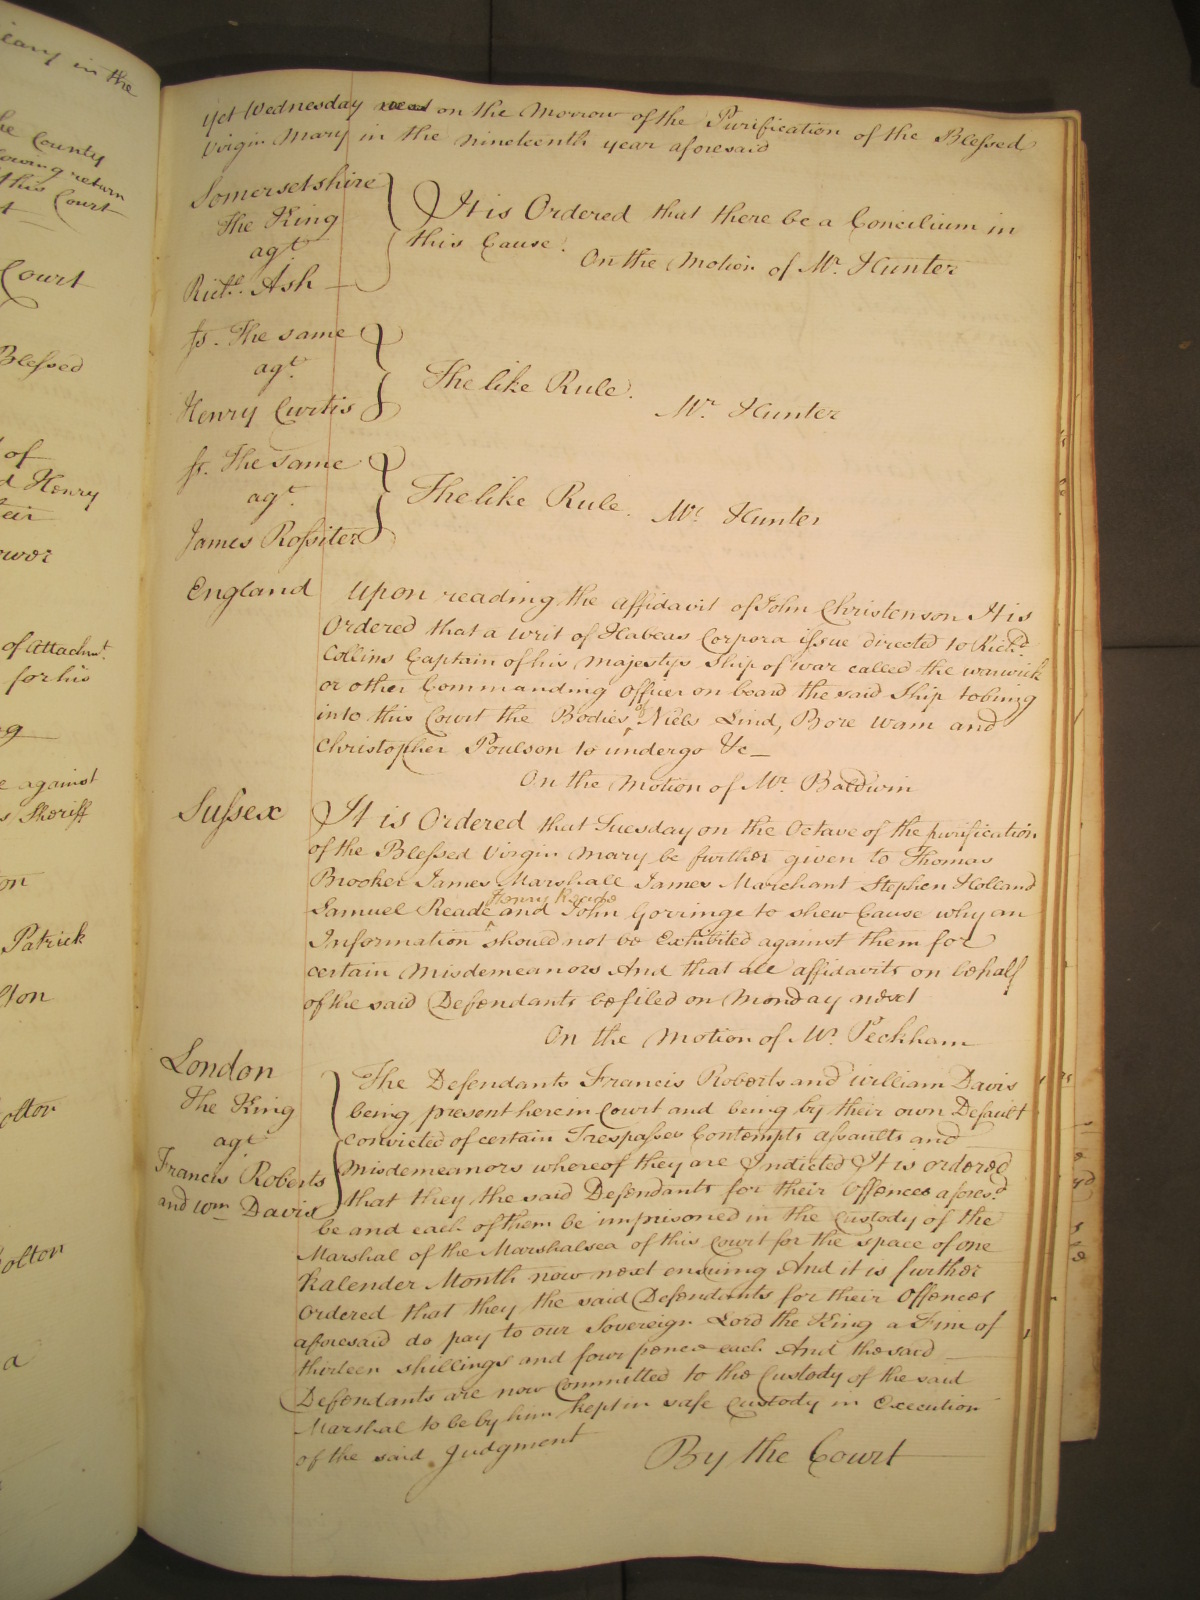 Yet Wednesday next on the Morrow of the Purification of the Blessed
Virgin Mary in the nineteenth year aforesaid
Somersetshire
The King
agt
Richd. Ash
It is Ordered that there be a Concilium in
this Cause.
On the Motion of Mr. Hunter
fs. The same
agt.
Henry Curtis
The like Rule.
Mr. Hunter
fs. The same
agt.
James Rossiter
The like Rule.
Mr. Hunter
England
Upon reading the affidavit of John Christenson It is
Ordered that a writ of Habeas Corpora issue directed to Richd.
Collins Captain of his majestys Ship of war called the warwick
or other Commanding officer on board the said Ship to bring
into this Court the Bodies of Niels Lind, Bore Wam and
Christopher Poulson to undergo &c
On the Motion of Mr. Baldwin
Sussex
It is Ordered that Tuesday on the Octave of the purification
of the Blessed Virgin Mary be further given to Thomas
Brooker James Marshall James Marchant Stephen Holland
Samuel Reade Henry Reade and John Gorringe to shew Cause why an
Information should not be Exhibited against them for
certain misdemeanors And that all affidavits on behalf
of the said Defendants be filed on Monday next
On the Motion of Mr. Peckham
London
The King
agt
Francis Roberts
and Wm Davis
The Defendants Francis Roberts and William Davis
being present here in Court and being by their own Default
convicted of certain Trespasses Contempts assaults and
misdemeanors whereof they are Indicted It is ordered
that they the said Defendants for their Offences aforesd.
be and each of them be imprisoned in the Custody of the
Marshal of the Marshalsea of this Court for the space of one
Kalender Month now next ensuing And it is further
Ordered that they the said Defendants for their Offences
aforesaid do pay to our Sovereign Lord the King a Fine of
thirteen shillings and four pence each And the said
Defendants are now Committed to the Custody of the said
Marshal to be by him kept in safe Custody in Execution
of the said Judgment
By the Court